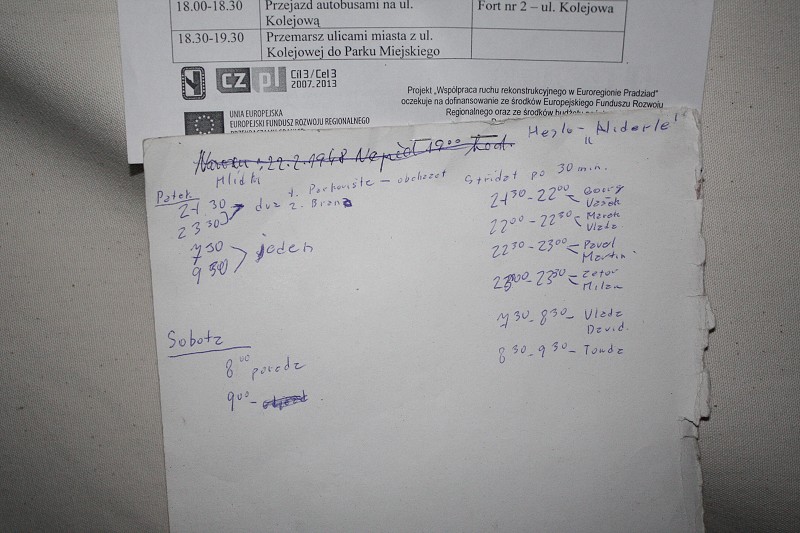 18.00-18.30 Przejazd autobusami na ul. Kolejową Fort nr 2 – ul. Kolejowa
18.30-19.30 Przemarsz ulicami miasta z ul. Kolejowej do Parku Miejskiego
cz pl Cíl 3 / Cel 3
2007-2013
Projekt „Współpraca ruchu rekonstrukcyjnego w Euroregionie Pradziad”
oczekuje na dofinansowanie ze środków Europejskiego Funduszu Rozwoju
Regionalnego oraz ze środków budżetu
UNIA EUROPEJSKA
EUROPEJSKI FUNDUSZ ROZWOJU REGIONALNEGO
22.2.1948 19⁰⁰ hod.
Heslo - "Niderle"
Hlídki
Patek
21.30
23 30
dva
1. Parkoviště - obchazet
2. Brana
7 30
9 30
jeden
Střídat po 30 min.
21 30 - 22 00 Vašek
22 00 - 22 30 Marek Vlada
22 30 - 23 00 Pavel Martin
23 00 - 23 30 Milan
7 30 - 8 30 - Vlada David
8 30 - 9 30 - Tonda
Sobota
8 00 porada
9 00 -